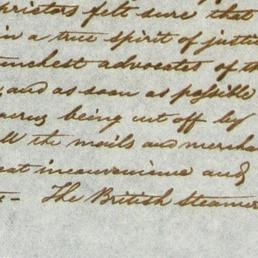 prietors felt sure that
in a true spirit of justic
unchest advocates of th
, and as soon as possible
being cut off by
ll the mails and mercha
eat inconvenience and
- The British Steamer